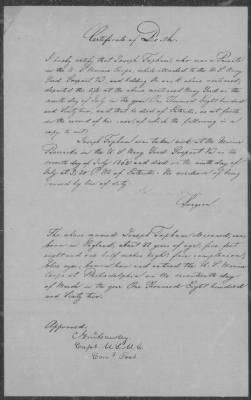 Certificate of Death.
I hereby certify that Joseph Topham who was a Private
in the U. S. Marine Corps, while attached to the U. S. Navy
Yard and holding the rank above mentioned,
departed this life at the above mentioned Navy Yard on the
ninth day of July in the year One Thousand Eight hundred
and Sixty two, and that he died of as set forth
in the record of his case, of which the following is a
copy to wit:
Joseph Topham was taken sick at the Marine
Barracks in the U. S. Navy Yard on the
day of July 1862 and died on the ninth day of
July at P.M. of No evidence of being
caused by line of duty.
Surgeon
The above named Joseph Topham deceased, was
born in England, about 22 years of age, five feet
eight and one half inches high, fair complexion,
blue eyes, brown hair and entered the U. S. Marine
Corps at Philadelphia on the day
of March in the year One Thousand Eight hundred
and Sixty two.
Approved;
Capt. U. S. M. C.
Com'g Post